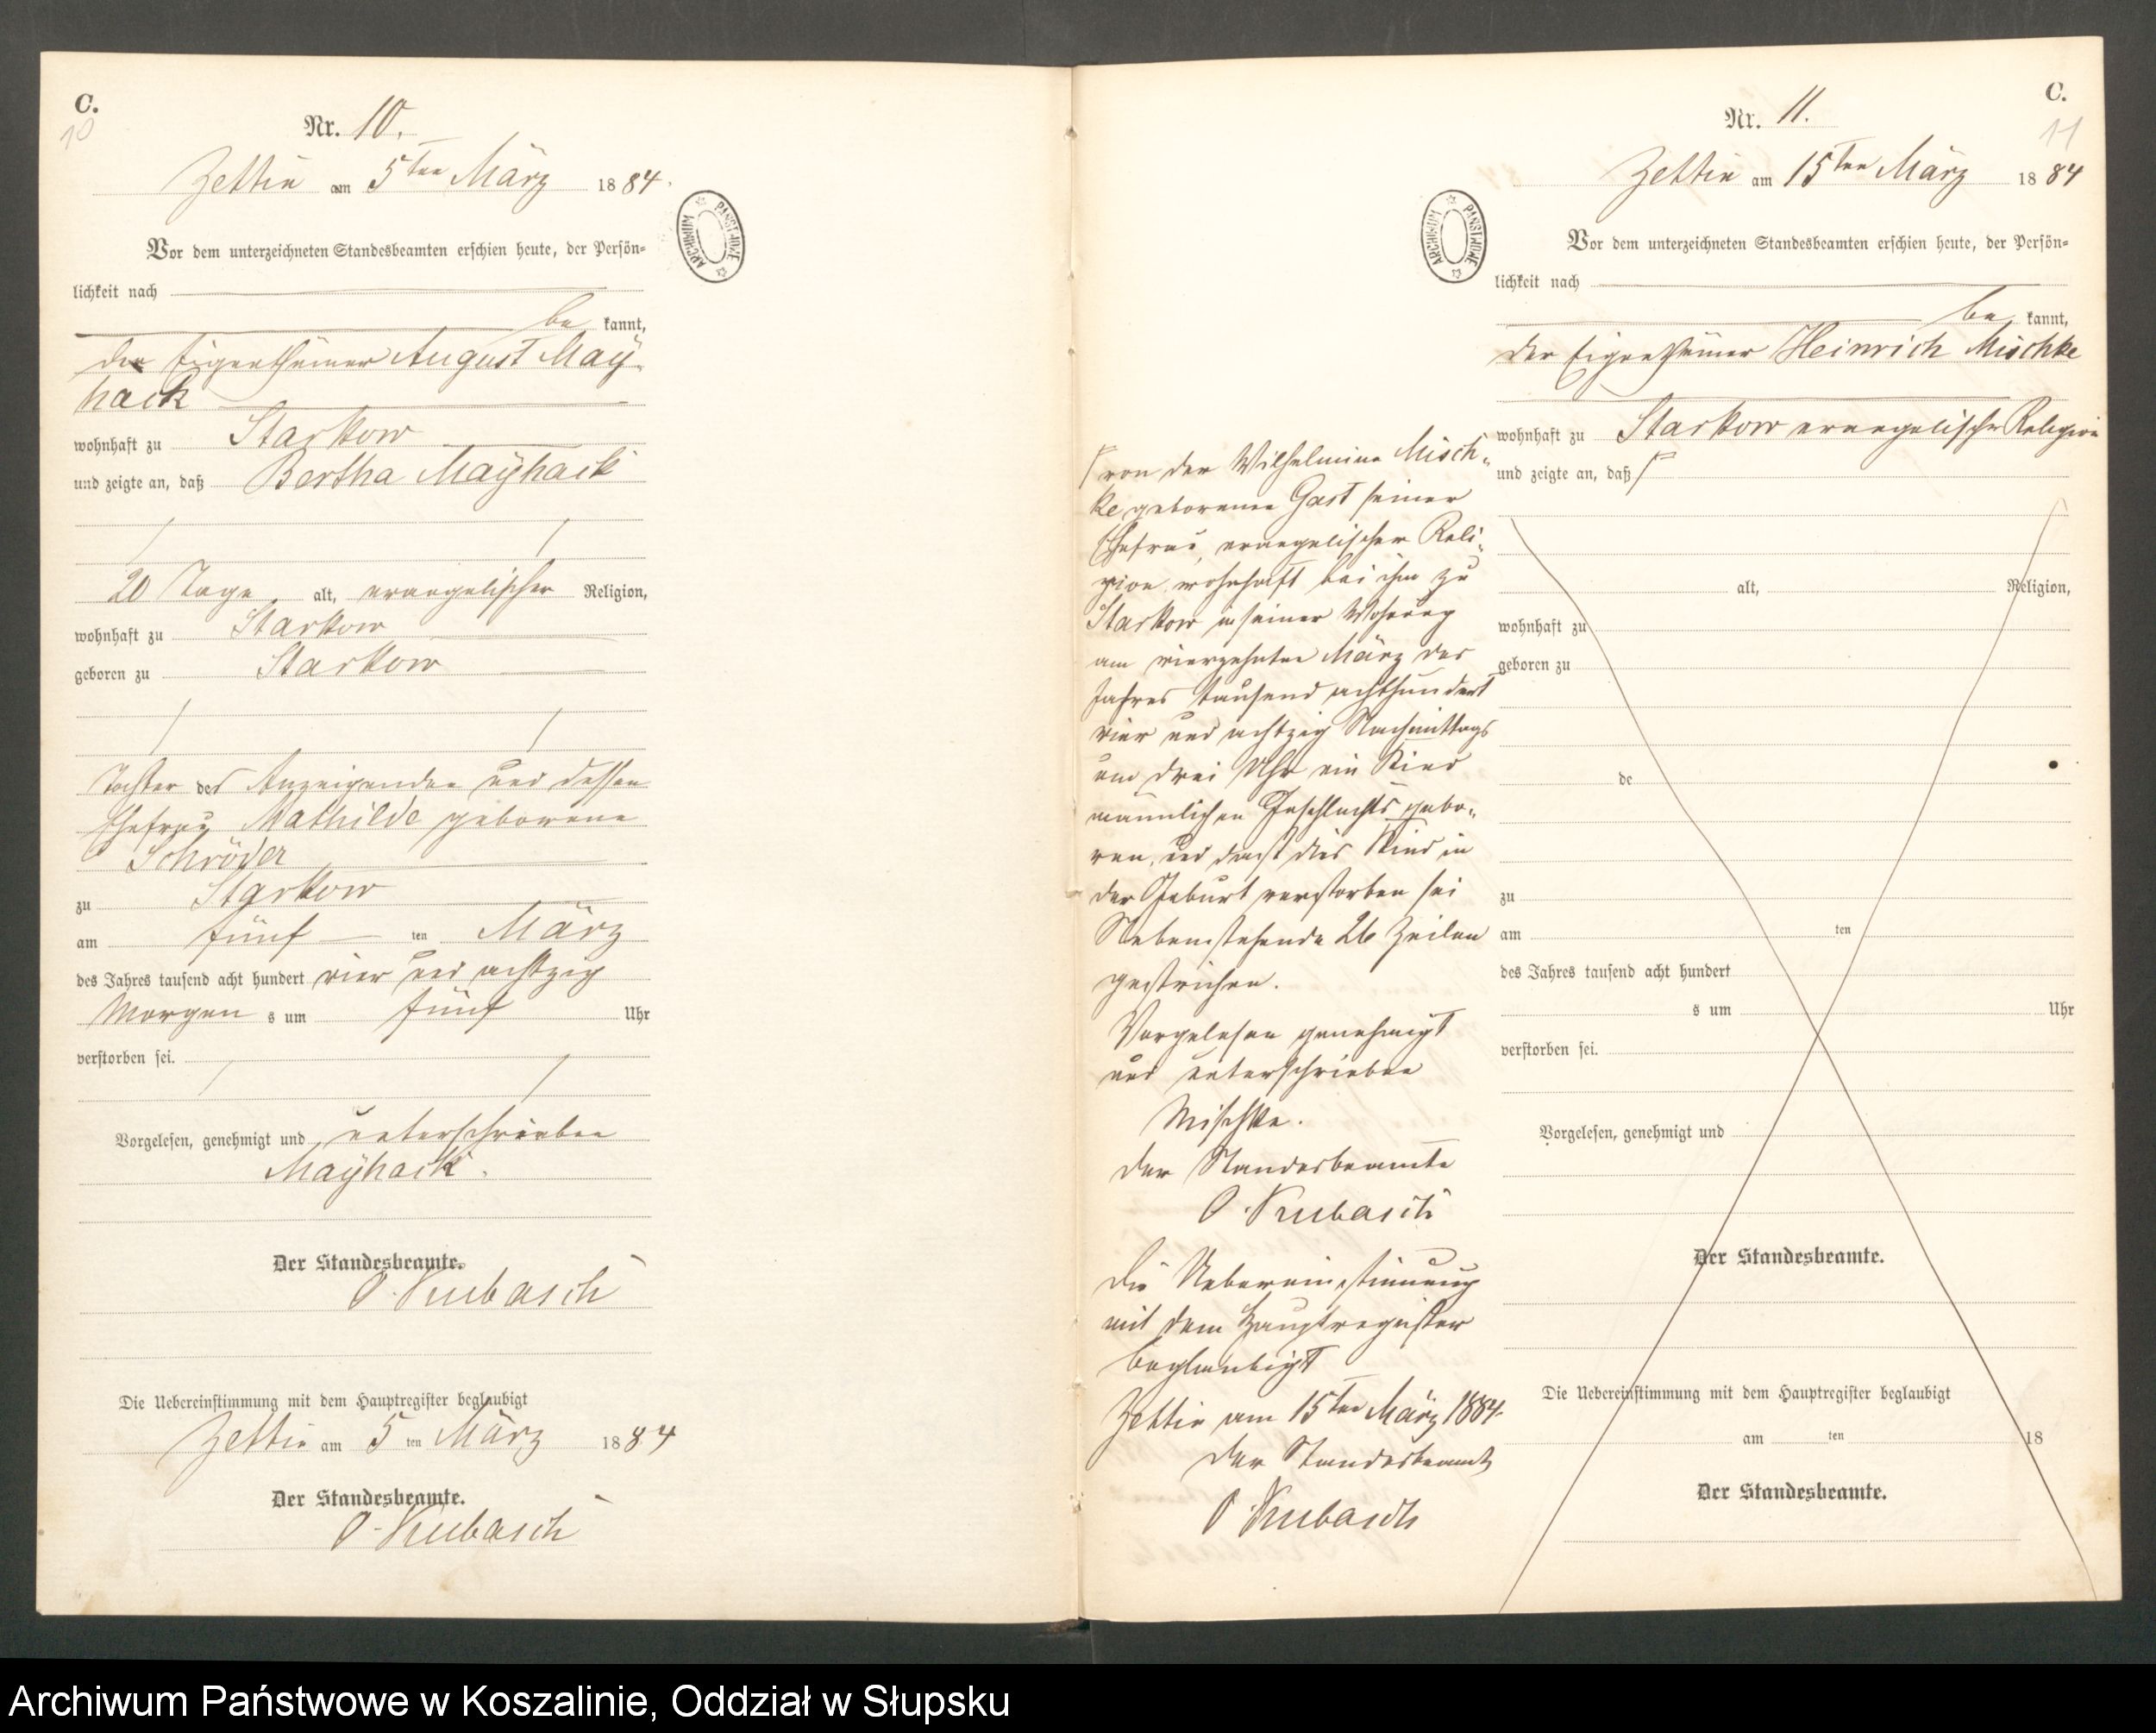 C.
10
Nr. 10.
Zettin am 5ten März 1884.
Vor dem unterzeichneten Standesbeamten erschien heute, der Persön=
lichkeit nach
be kannt,
der Eigenthümer August Maÿ-
hack
wohnhaft zu Starkow
und zeigte an, daß Bertha Maÿhack
20 Tage alt, evangelischer Religion,
wohnhaft zu Starkow
geboren zu Starkow
Tochter des Anzeigenden und dessen
Ehefrau Mathilde geborene
Schröder
zu Starkow
am fünf ten März
des Jahres tausend acht hundert vier und achtzig
Morgen s um fünf Uhr
verstorben sei.
Vorgelesen, genehmigt und unterschrieben
Maÿhack.
Der Standesbeamte.
O. Kubasch
Die Uebereinstimmung mit dem Hauptregister beglaubigt
Zettin am 5 ten März 1884
Der Standesbeamte.
O. Kubasch
ARCHIWUM PAŃSTWOWE
C.
11
Nr. 11.
Zettin am 15ten März 1884
Vor dem unterzeichneten Standesbeamten erschien heute, der Persön=
lichkeit nach
be kannt,
der Eigenthümer Heinrich Mischke
wohnhaft zu Starkow evangelischer Religion
und zeigte an, daß
alt, Religion,
wohnhaft zu
geboren zu
de
zu
am ten
des Jahres tausend acht hundert
s um Uhr
verstorben sei.
Vorgelesen, genehmigt und
Der Standesbeamte.
Die Uebereinstimmung mit dem Hauptregister beglaubigt
am ten 18
Der Standesbeamte.
ARCHIWUM PAŃSTWOWE
von der Wilhelmine Misch-
ke geborenen Gast seiner
Ehefrau, evangelischer Reli-
gion wohnhaft bei ihm zu
Starkow in seiner Wohnung
am vierzehnten März des
Jahres tausend achthundert
vier und achtzig Nachmittags
um drei Uhr ein Kind
männlichen Geschlechts gebo-
ren, und daß dies Kind in
der Geburt verstorben sei
Nebenstehende 26 Zeilen
gestrichen.
Vorgelesen genehmigt
und unterschrieben
Mischke.
Der Standesbeamte
O. Kubasch
Die Uebereinstimmung
mit dem Hauptregister
beglaubigt
Zettin am 15ten März 1884.
Der Standesbeamte
O. Kubasch
Archiwum Państwowe w Koszalinie, Oddział w Słupsku